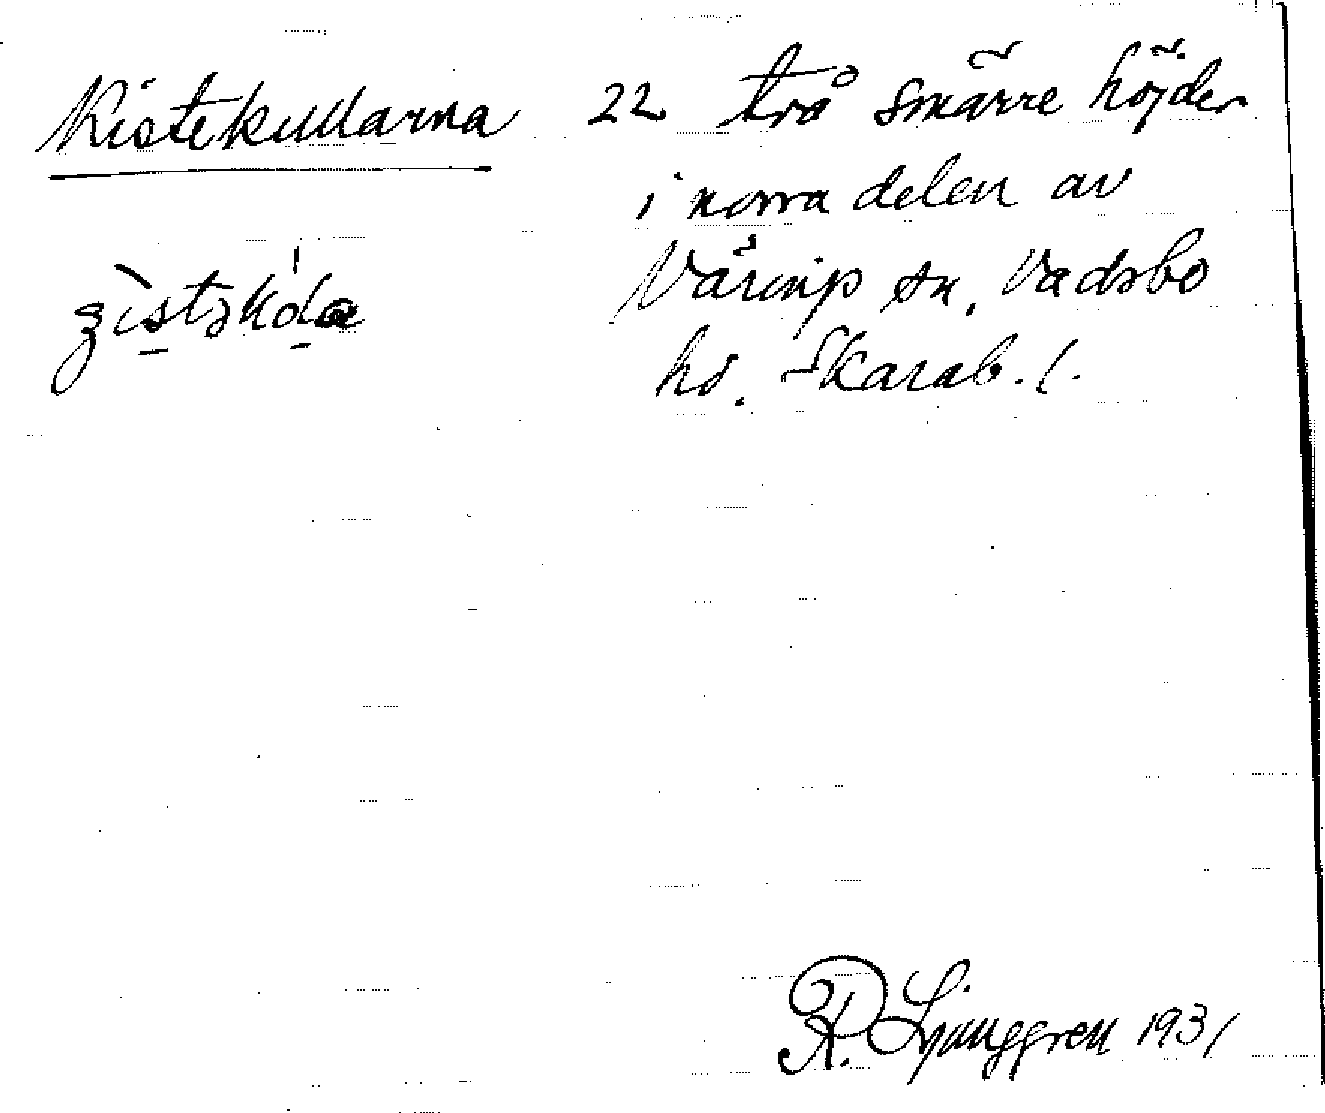 Kistekullarna 22 två smärre höjder
i norra delen av
Värings sn. Vadsbo
hd. Skarab. l.
R. Ljunggren 1931